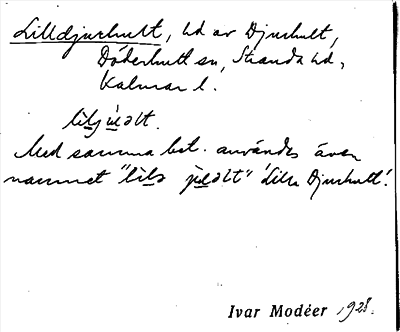 Lilldjurhult, hd av Djurhult,
Döderhult sn, Stranda hd,
Kalmar l.
Med samma bet. användes även
namnet "lilla "Lilla Djurhult'.
Ivar Modéer 1928.